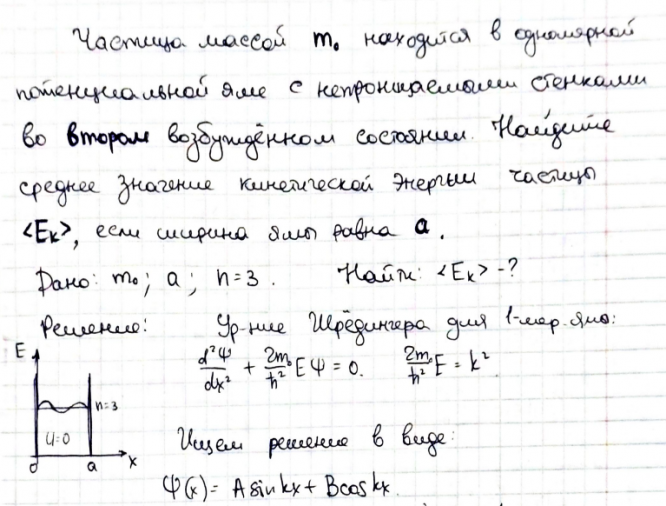 Частица массой m₀ находится в одномерной
потенциальной яме с непроницаемыми стенками
во втором возбуждённом состоянии. Найдите
среднее значение кинетической энергии частицы
<Eк>, если ширина ямы равна a.
Дано: m₀; a; n=3. Найти: <Eк> -?
Решение: Ур-ние Шрёдингера для 1-мер. ямы:
d²Ψ/dx² + 2m₀/ħ² EΨ = 0. 2m₀/ħ² E = k².
E
n=3
U=0
0 a x
Ищем решение в виде:
Ψ(x) = A sin kx + B cos kx.